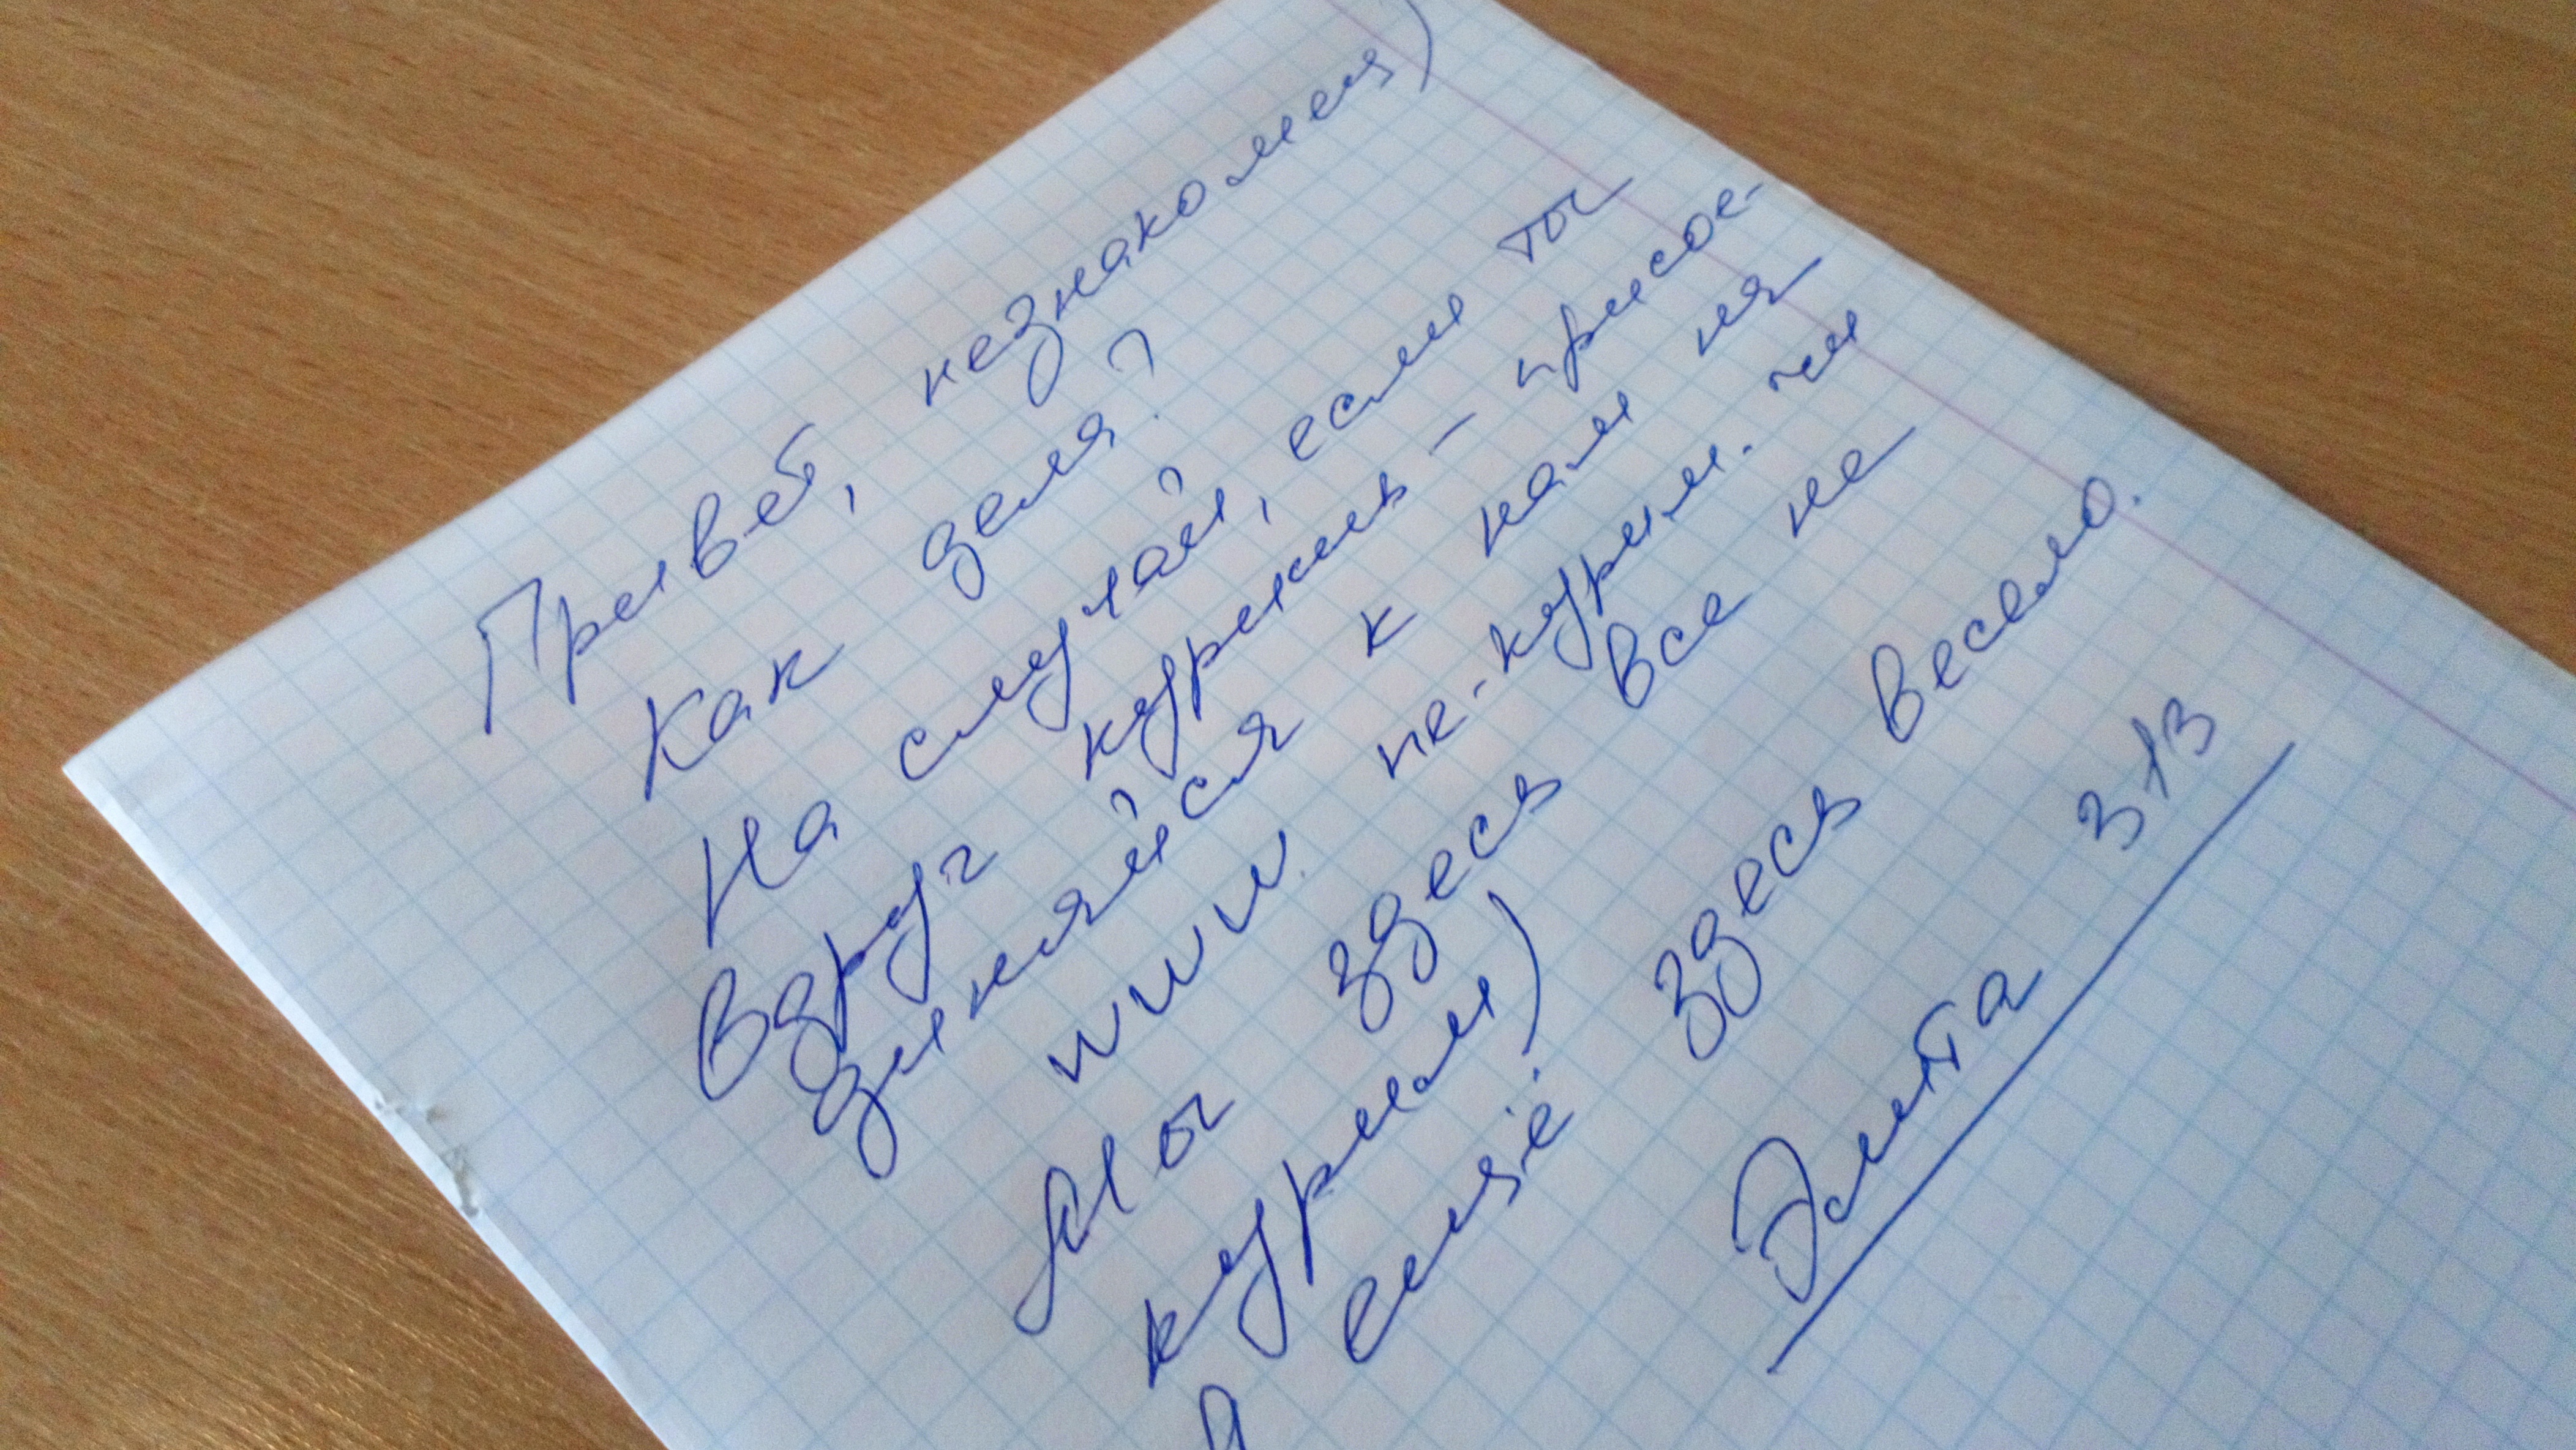 Привет, незнакомец)
Как дела?
На случай, если ты
вдруг куришь - присое-
диняйся к нам на
www.не-курим.чи
Мы здесь все не
курим)
А ещё здесь весело.
Элита 313